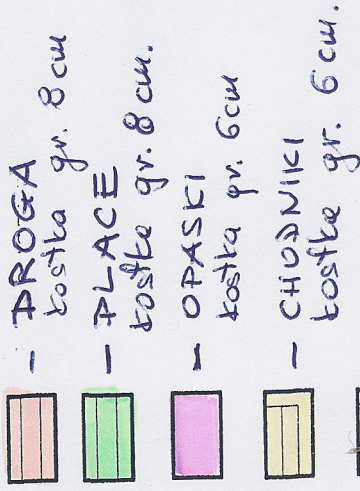 - DROGA
kostka gr. 8 cm
- PLACE
kostka gr. 8 cm.
- OPASKI
kostka gr. 6 cm
- CHODNIKI
kostka gr. 6 cm.